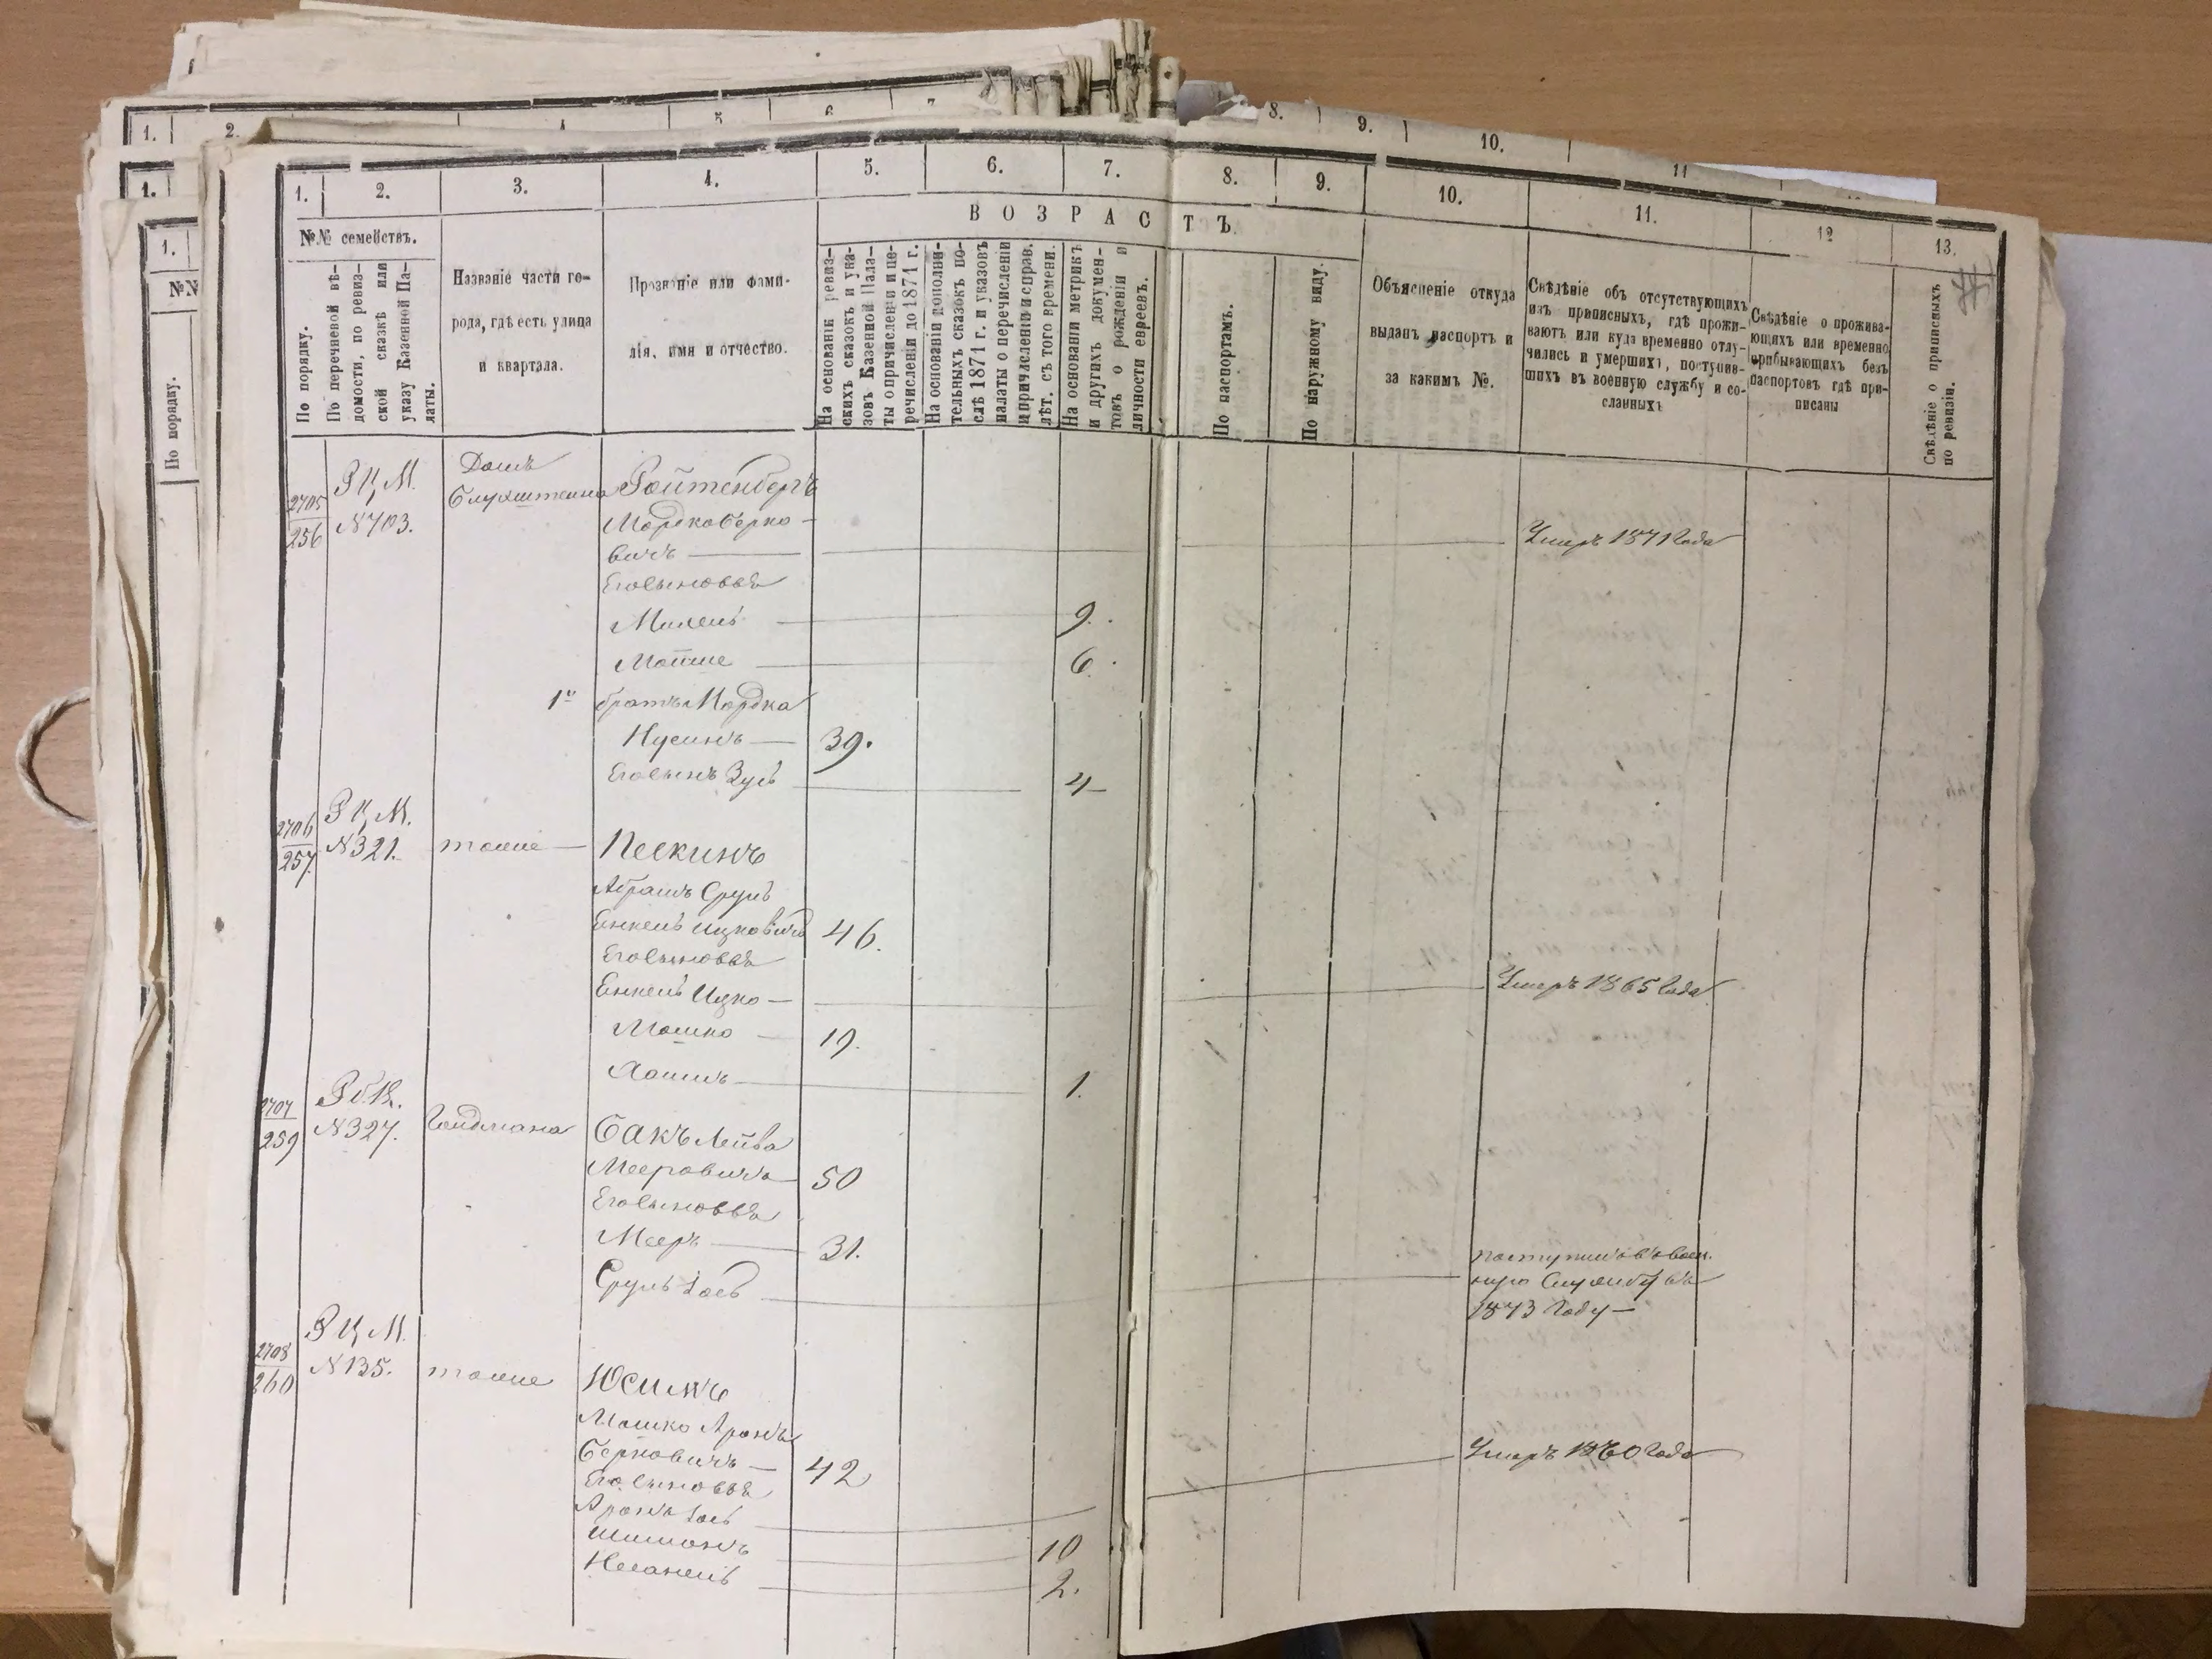 8. 9. 10. 11
1. 2. 4 5 6 7
1.
1.
№№
По порядку.
1. 2. 3. 4. 5. 6. 7. 8. 9. 10. 11. 12 13.
№№ семействъ.
По порядку.
По перечневой вѣ-
домости, по ревиз-
ской сказкѣ или
указу Казенной Па-
латы.
Названіе части го-
рода, гдѣ есть улица
и квартала.
Прозваніе или фами-
лія, имя и отчество.
ВОЗРАСТЪ.
На основаніи ревиз-
скихъ сказокъ и ука-
зовъ Казенной Пала-
ты о причисленіи и пе-
речисленіи до 1871 г.
На основаніи дополни-
тельныхъ сказокъ по-
слѣ 1871 г. и указовъ
палаты о перечисленіи
и причисленіи и справ.
лѣт. съ того времени.
На основаніи метрикъ
и другихъ докумен-
товъ о рожденіи и
личности евреевъ.
По паспортамъ.
По наружному виду.
Объясненіе откуда
выданъ паспортъ и
за какимъ №.
Свѣдѣніе объ отсутствующихъ
изъ приписныхъ, гдѣ прожи-
ваютъ или куда временно отлу-
чились и умершихъ, поступив-
шихъ въ военную службу и со-
сланныхъ
Свѣдѣніе о прожива-
ющихъ или временно
прибывающихъ безъ
паспортовъ гдѣ при-
писаны
Свѣдѣніе о приписныхъ
по ревизіи.
2705
256
Р Ц М.
№703.
Домъ
Ройтенбергъ
Мордко Берко-
вичъ
Умеръ 1871 Года
Его сыновья
9.
Мойше 6.
1й братъ Мордка
Нусинъ 39.
Его сынъ Зусь 4
2706
257.
Р Ц М.
№321.
тоже Пескинъ
Абрамъ Сруль
Енкель Ицковичъ 46.
Его сыновья
Енкель Ицко Умеръ 1865 Года
Мошко 19.
Хаимъ 1.
2707
259
№327.
Гойдмана Бакъ Лейба
Мееровичъ 50
Его сыновья
Мееръ 31.
Сруль Іось поступилъ въ воен-
ную Службу въ
1873 Году
2708
260
Р Ц М.
№135.
тоже Юсимъ
Мошко Аронъ
Берковичъ 42
Его сыновья
Аронъ Іось Умеръ 1860 Года
Шимонъ 10
2.